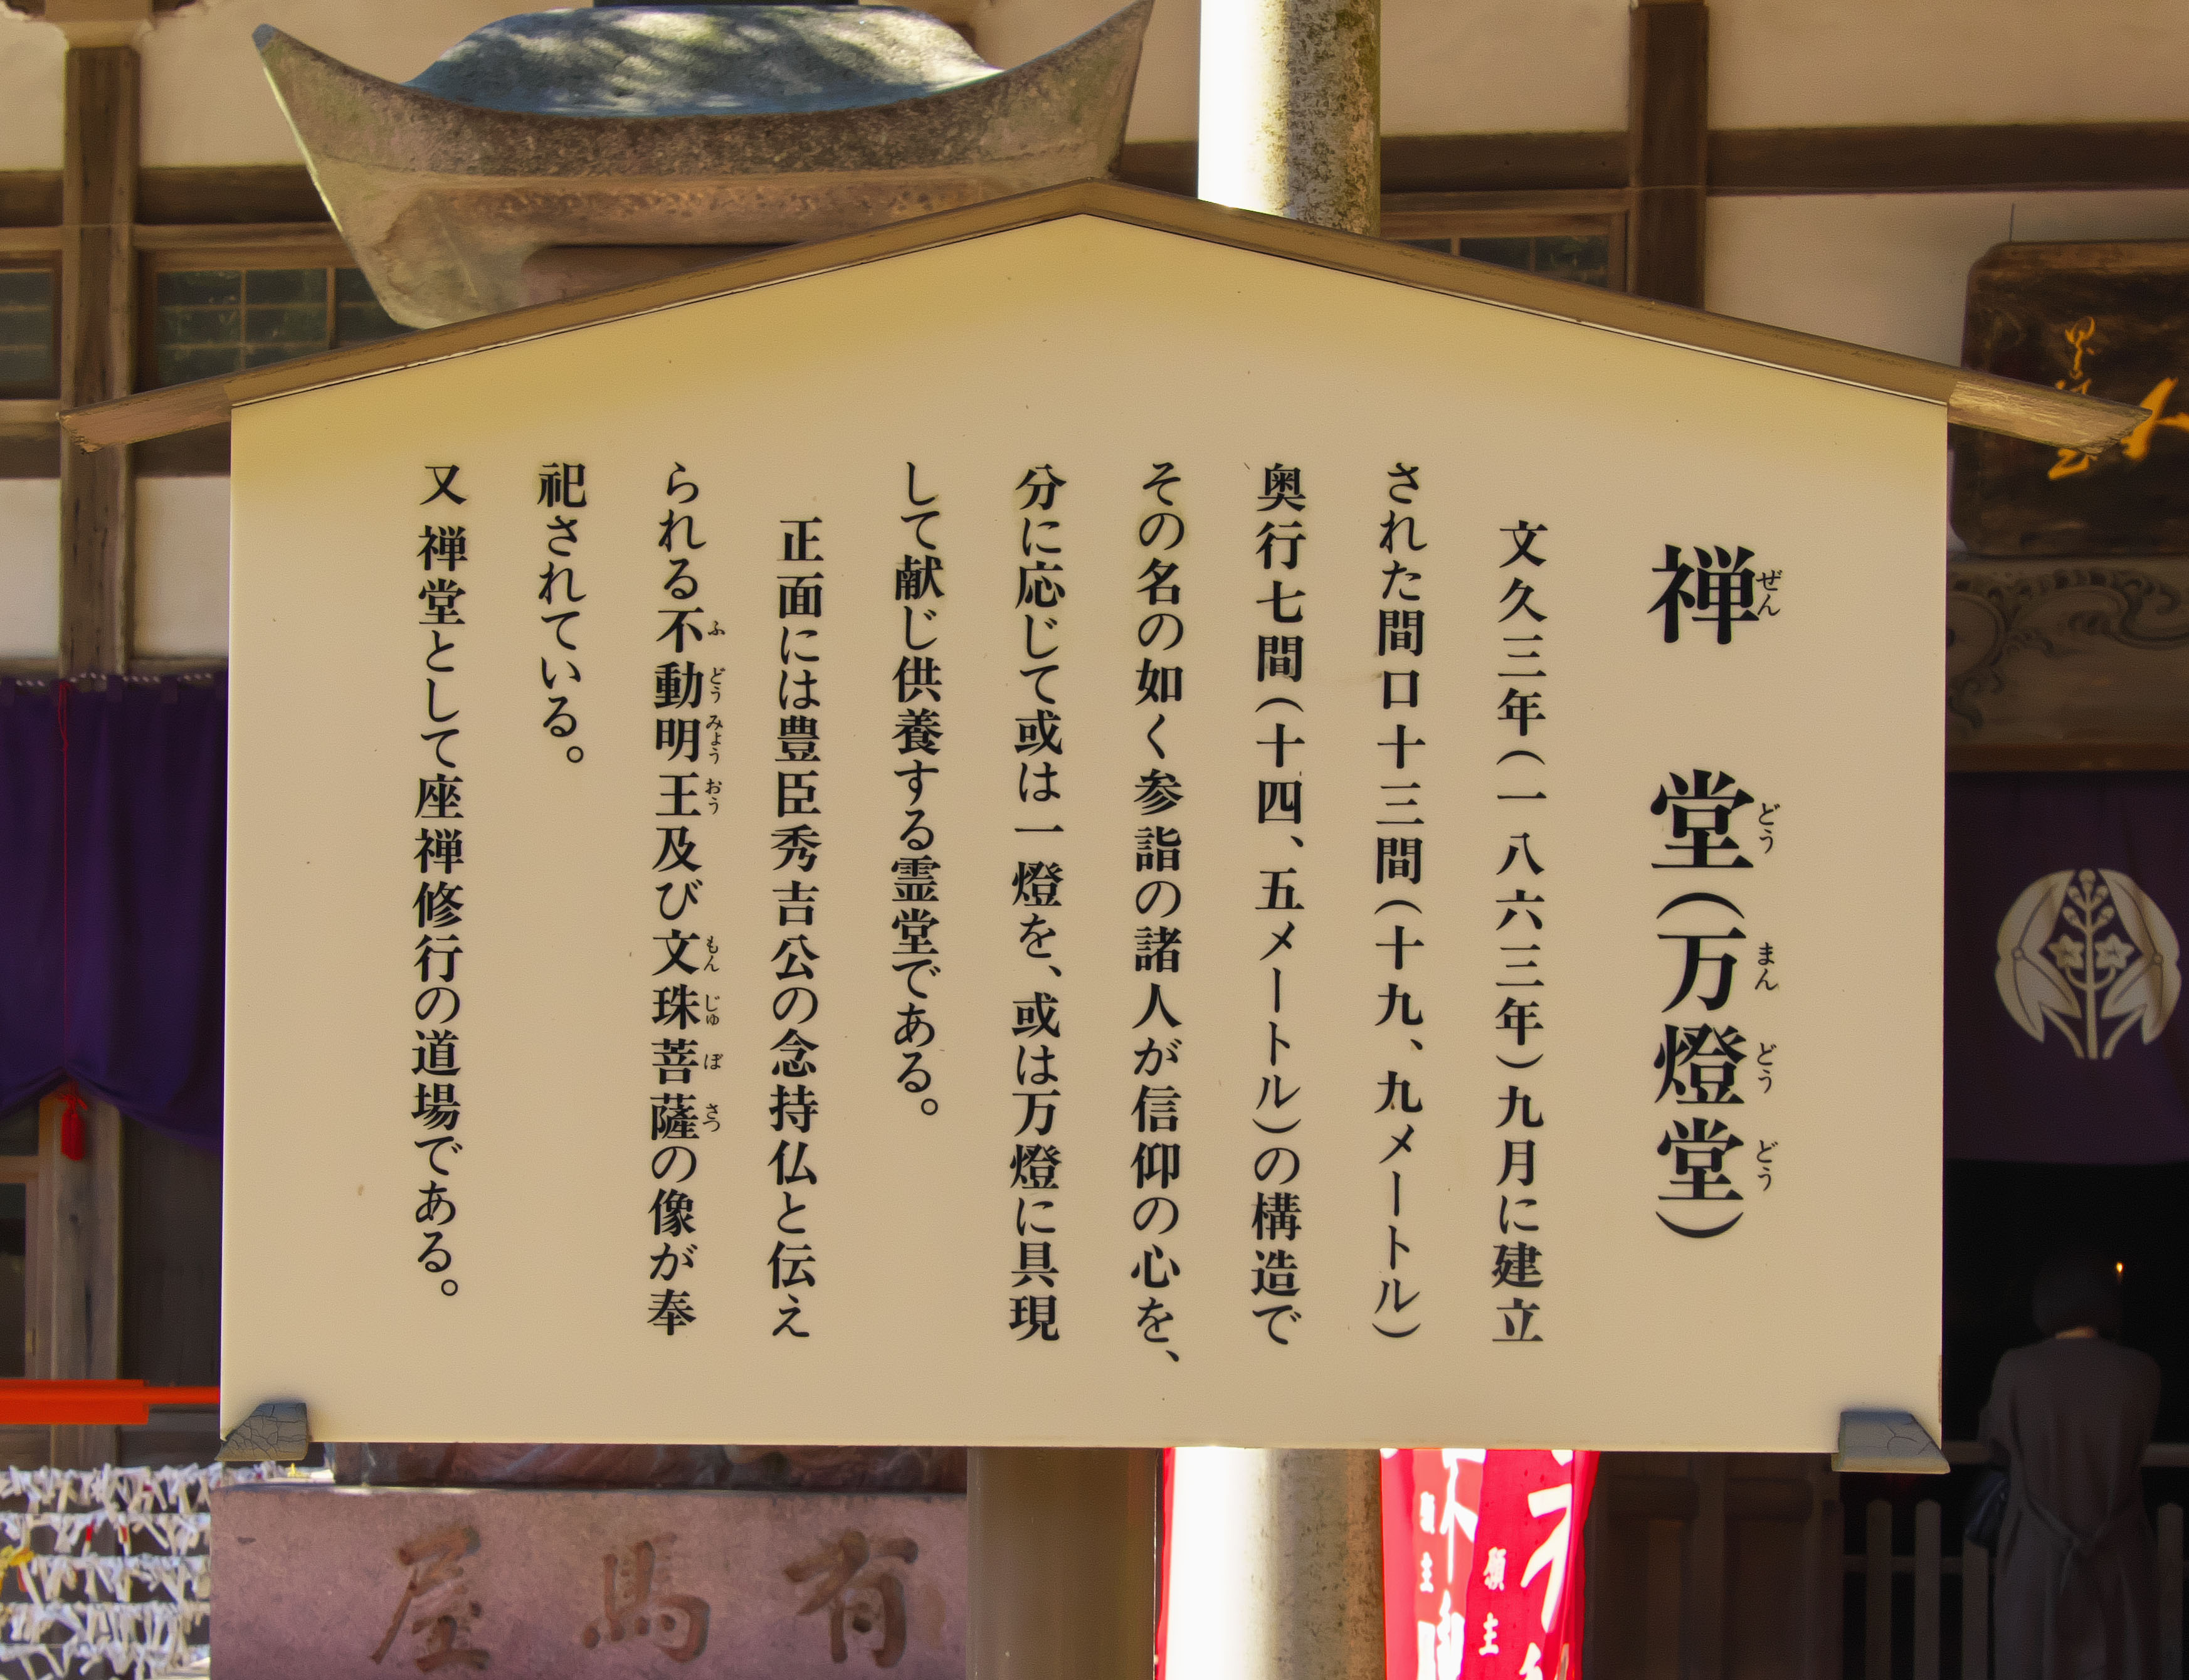 禅堂(万燈堂)
ぜん どう まん どう どう
文久三年(一八六三年)九月に建立
された間口十三間(十九、九メートル)
奥行七間(十四、五メートル)の構造で
その名の如く参詣の諸人が信仰の心を、
分に応じて或は一燈を、或は万燈に具現
して献じ供養する霊堂である。
正面には豊臣秀吉公の念持仏と伝え
られる不動明王及び文珠菩薩の像が奉
ふ どう みょう おう もん じゅ ぼ さつ
祀されている。
又禅堂として座禅修行の道場である。
有馬屋
願主
主